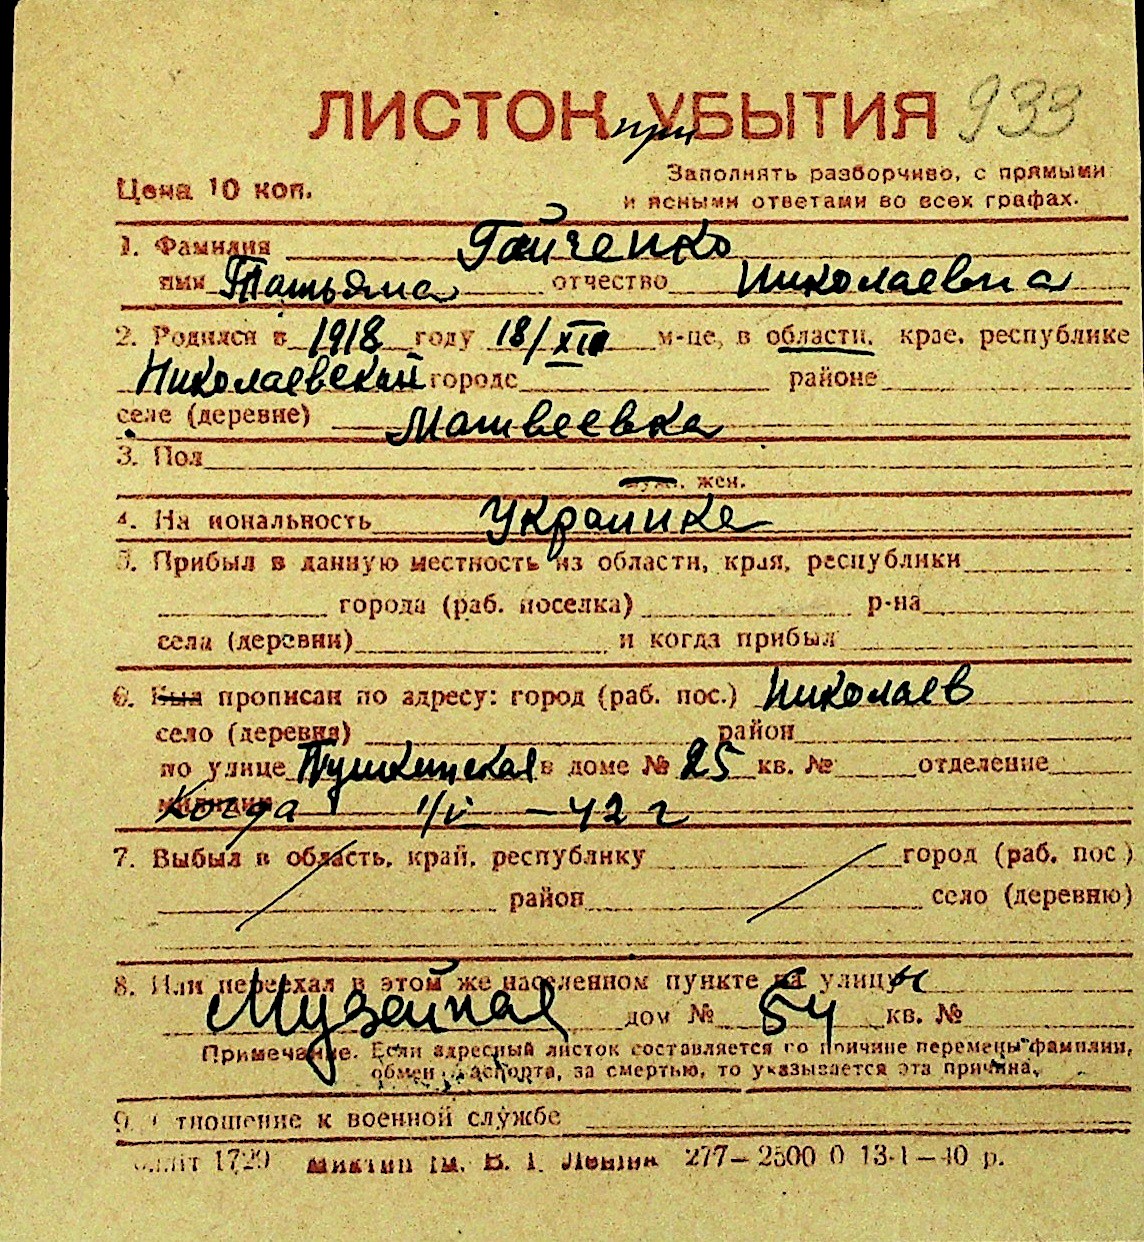 ЛИСТОК при УБЫТИЯ 933
Цена 10 коп.
Заполнять разборчиво, с прямыми
и ясными ответами во всех графах.
1. Фамилия Гайченко
имя Татьяна отчество Николаевна
2. Родился в 1918 году 18/XII м-це, в области, крае, республике
Николаевский городе районе
селе (деревне) Матвеевка
3. Пол
муж. жен.
4. На иональность Украинка
5. Прибыл в данную местность из области, края, республики
города (раб. поселка) р-на
села (деревни) и когда прибыл
6. Был прописан по адресу: город (раб. пос.) Николаев
село (деревня) район
по улице Пушкинская в доме № 25 кв. № отделение
милиции Когда 1/V - 42 г
7. Выбыл в область, край, республику город (раб. пос.)
район село (деревню)
8. Или переехал в этом же населенном пункте на улицу с
Музейная дом № 54 кв. №
Примечание. Если адресный листок составляется по причине перемены фамилии,
обмен паспорта, за смертью, то указывается эта причина.
9. тношение к военной службе
1729 277—2500 0 13-1—40 р.